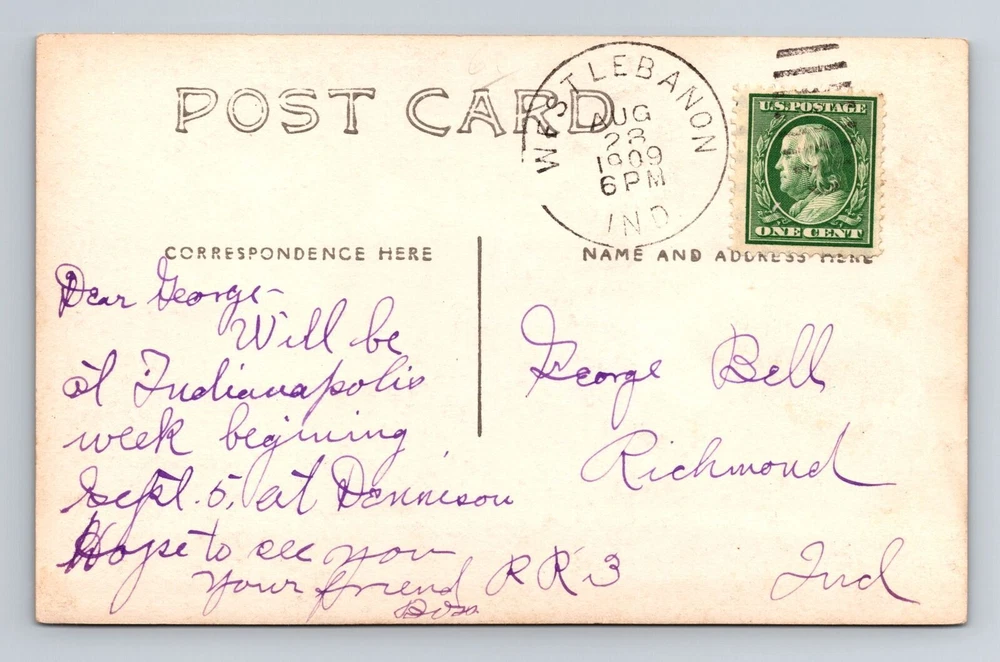 POST CARD
WEST LEBANON
AUG
28
1909
6PM
IND.
U.S. POSTAGE
ONE CENT
CORRESPONDENCE HERE
NAME AND ADDRESS HERE
Dear George-
Will be
at Indianapolis
week begining
Sept. 5, at Dennison
Hope to see you
Your friend
George Bell
Richmond
RR 3
Ind